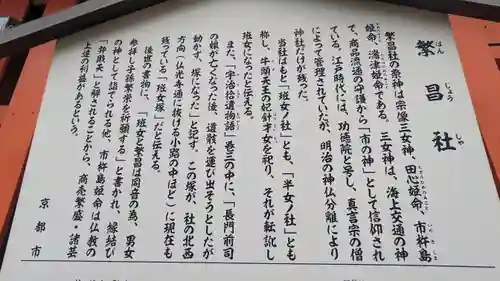 繁昌社
はん じょう しゃ
繁昌社の祭神は宗像三女神、田心姫命、市杵島
姫命、湍津姫命である。三女神は、海上交通の神
で、商品流通の守護から「市の神」として信仰され
ている。江戸時代には、功徳院と号し、真言宗の僧
によって管理されていたが、明治の神仏分離により
神社だけが残った。
当社はもと「班女ノ社」とも、「半女ノ社」とも
称し、牛頭天王の妃針才女を祀り、それが転訛し
班女になったと伝える。
また、「宇治拾遺物語」巻三の中に、「長門前司
の娘が亡くなった後、遺骸を運び出そうとしたが
動かず、塚になった」と記す。この塚が、社の北西
方向(仏光寺通に抜ける小路の中ほど)に現在も
残っている「班女塚」だと伝える。
後世の書物に、「班女と繁昌は同音の為、男女
参拝し子孫繁栄を祈願する」と書かれ、縁結び
の神として詣でられる他、市杵島姫命は仏教の
「弁財天」と解されることから、商売繁盛・諸芸
上達の利益があるという。
京都市